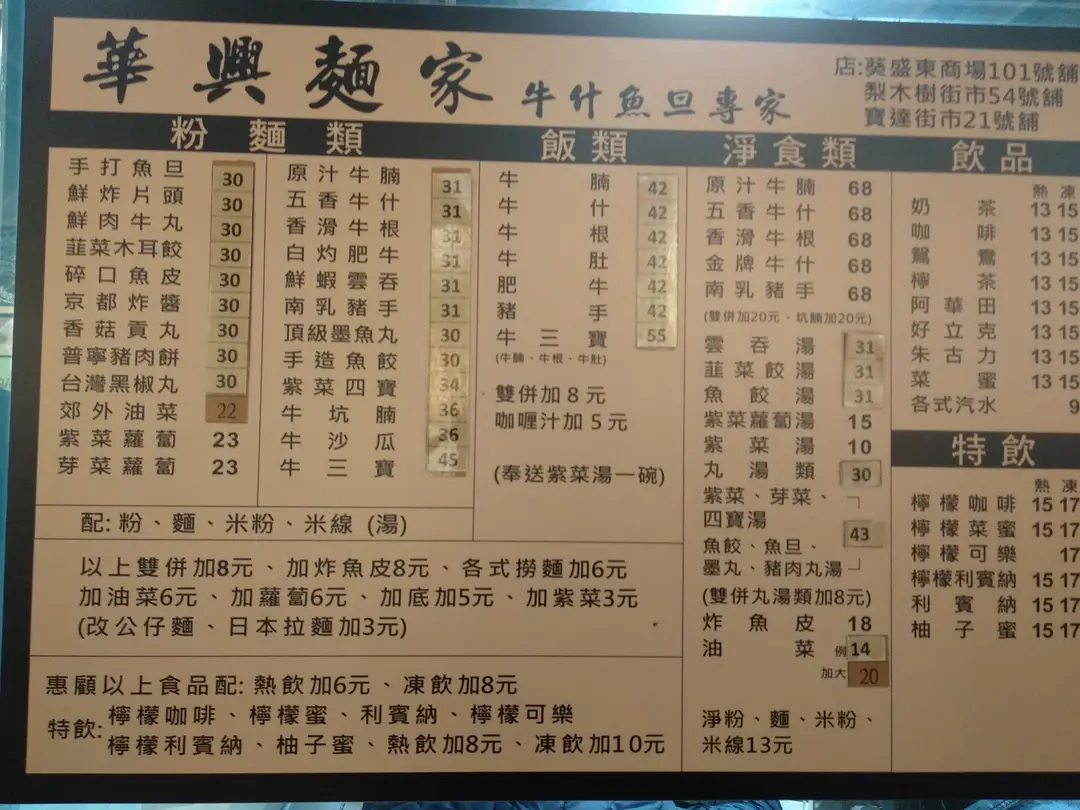 華興麵家 牛什魚旦專家
店:葵盛東商場101號舖
梨木樹街市54號舖
寶達街市21號舖
粉麵類
手打魚旦 30
鮮炸片頭 30
鮮肉牛丸 30
韮菜木耳餃 30
碎口魚皮 30
京都炸醬 30
香菇貢丸 30
普寧豬肉餅 30
台灣黑椒丸 30
郊外油菜 22
紫菜蘿蔔 23
芽菜蘿蔔 23
原汁牛腩 31
五香牛什 31
香滑牛根 31
白灼肥牛 31
鮮蝦雲吞 31
南乳豬手 31
頂級墨魚丸 30
手造魚餃 30
紫菜四寶 34
牛坑腩 36
牛沙瓜 36
牛三寶 45
配: 粉、麵、米粉、米線 (湯)
飯類
牛腩 42
牛什 42
牛根 42
牛肚 42
肥牛 42
豬手 42
牛三寶 55
(牛腩、牛根、牛肚)
雙併加8元
咖喱汁加5元
(奉送紫菜湯一碗)
以上雙併加8元、加炸魚皮8元、各式撈麵加6元
加油菜6元、加蘿蔔6元、加底加5元、加紫菜3元
(改公仔麵、日本拉麵加3元)
惠顧以上食品配: 熱飲加6元、凍飲加8元
特飲: 檸檬咖啡、檸檬蜜、利賓納、檸檬可樂
檸檬利賓納、柚子蜜、熱飲加8元、凍飲加10元
淨食類
原汁牛腩 68
五香牛什 68
香滑牛根 68
金牌牛什 68
南乳豬手 68
(雙併加20元、坑腩加20元)
雲吞湯 31
韮菜餃湯 31
魚餃湯 31
紫菜蘿蔔湯 15
紫菜湯 10
丸湯類 30
紫菜、芽菜、
四寶湯
43
魚餃、魚旦、
墨丸、豬肉丸湯
(雙併丸湯類加8元)
炸魚皮 18
油菜 例 14
加大 20
淨粉、麵、米粉、
米線13元
飲品
熱 凍
奶茶 13 15
咖啡 13 15
鴛鴦 13 15
檸茶 13 15
阿華田 13 15
好立克 13 15
朱古力 13 15
菜蜜 13 15
各式汽水 9
特飲
熱 凍
檸檬咖啡 15 17
檸檬菜蜜 15 17
檸檬可樂 17
檸檬利賓納 15 17
利賓納 15 17
柚子蜜 15 17